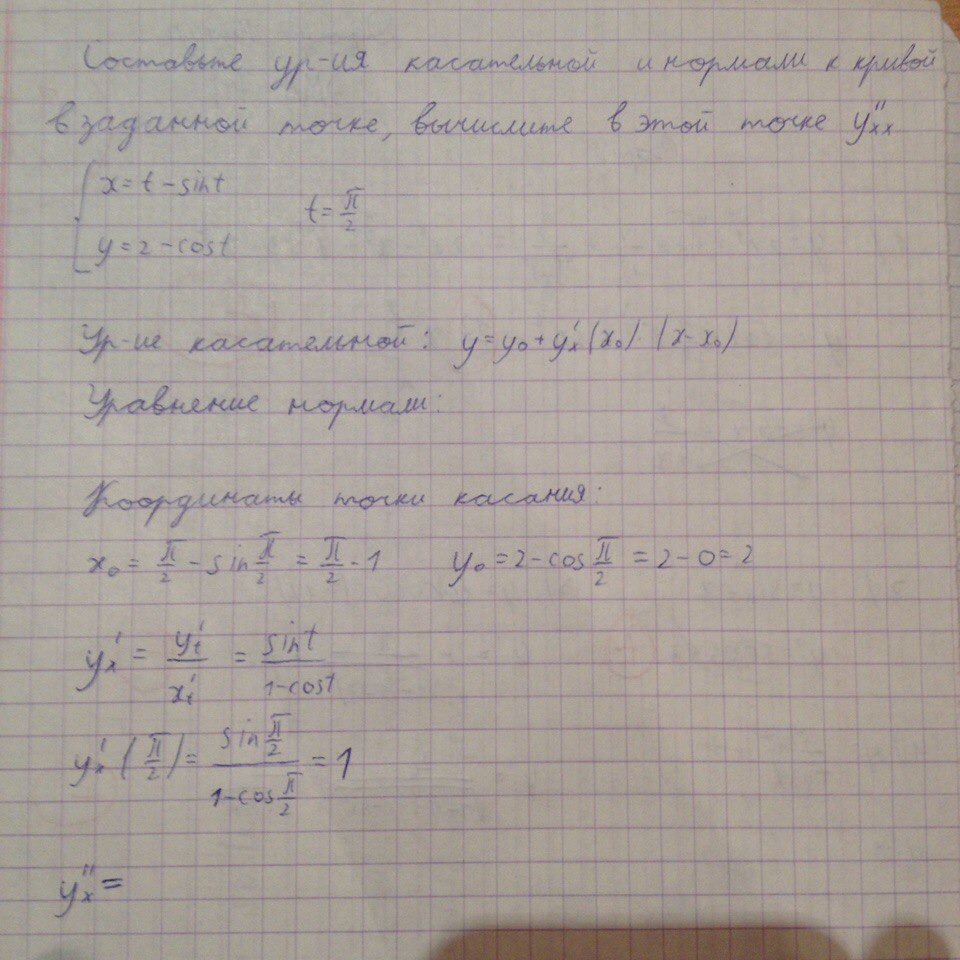 Составьте ур-ия касательной и нормали к кривой
в заданной точке, вычислите в этой точке y''xx
x = t - sint
t = π/2
y = 2 - cost
Ур-ие касательной: y = y₀ + y'x (x₀) (x - x₀)
Уравнение нормали:
Координаты точки касания:
x₀ = π/2 - sin π/2 = π/2 - 1 y₀ = 2 - cos π/2 = 2 - 0 = 2
y'x = y't / x't = sint / 1-cost
y'x (π/2) = sin π/2 / 1-cos π/2 = 1
y''x =